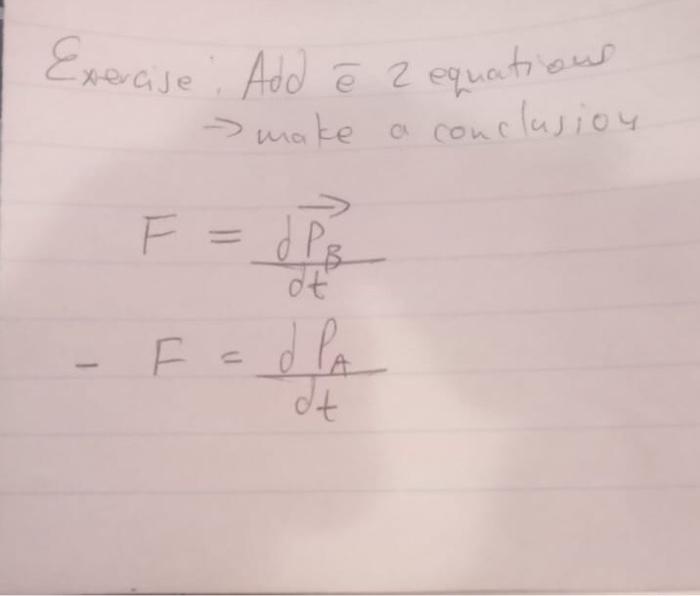 Exercise: Add ē 2 equations
→ make a conclusion
F = dP⃗_B
dt
- F = dP_A
dt